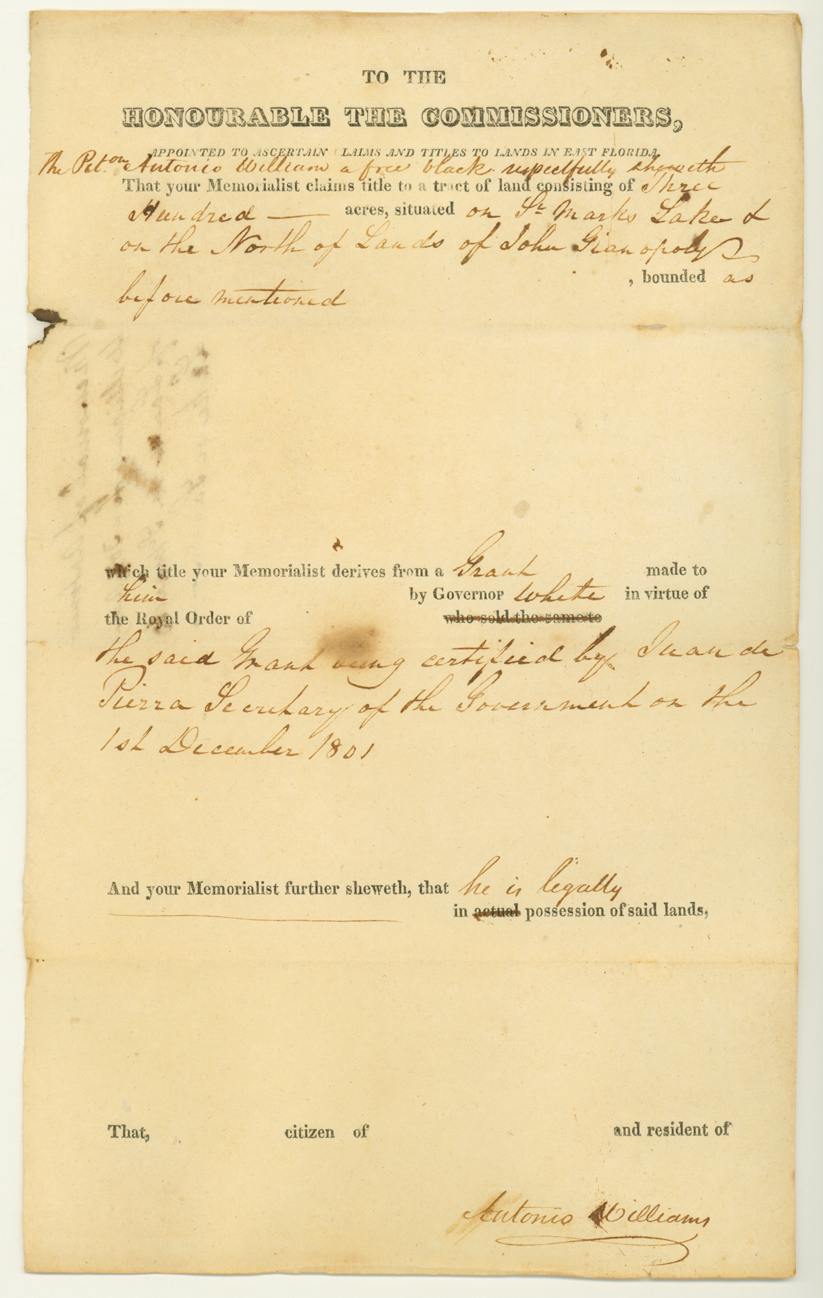 TO THE
HONOURABLE THE COMMISSIONERS,
APPOINTED TO ASCERTAIN CLAIMS AND TITLES TO LANDS IN EAST FLORIDA.
The Pet.on Antonio William a free black respectfully sheweth
That your Memorialist claims title to a tract of land consisting of Three
Hundred — acres, situated on St Marks Lake &
on the North of Lands of John Gianopoly
, bounded as
before mentioned
which title your Memorialist derives from a Grant made to
him by Governor White in virtue of
the Royal Order of who sold the same to
the said Grant being certified by Juan de
Pierra Secretary of the Government on the
1st December 1801
And your Memorialist further sheweth, that he is legally
in actual possession of said lands,
That, citizen of and resident of
Antonio Williams